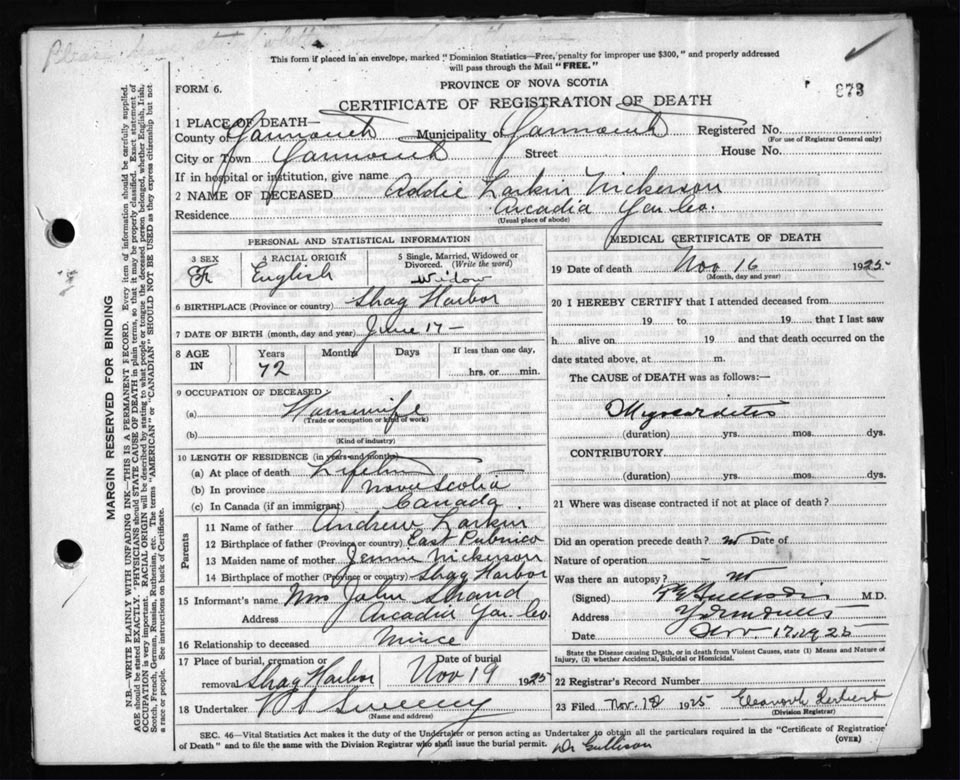 Please
This form if placed in an envelope, marked "Dominion Statistics—Free, penalty for improper use $300," and properly addressed
will pass through the Mail "FREE."
FORM 6.
PROVINCE OF NOVA SCOTIA
873
CERTIFICATE OF REGISTRATION OF DEATH
1 PLACE OF DEATH—
County of Yarmouth Municipality of Yarmouth Registered No.
(For use of Registrar General only)
City or Town Yarmouth Street House No.
If in hospital or institution, give name
2 NAME OF DECEASED Addie Larkin Nickerson
Residence Arcadia Yar. Co.
(Usual place of abode)
MARGIN RESERVED FOR BINDING
N.B.—WRITE PLAINLY WITH UNFADING INK—THIS IS A PERMANENT RECORD. Every item of information should be carefully supplied.
AGE should be stated EXACTLY. PHYSICIANS should STATE CAUSE OF DEATH in plain terms, so that it may be properly classified. Exact statement of
OCCUPATION is very important. RACIAL ORIGIN will be described by stating to what people or tongue the deceased person belonged, whether English, Irish,
Scotch, French, German, Russian, Ruthenian, etc. The terms "AMERICAN" or "CANADIAN" SHOULD NOT BE USED as they express citizenship but not
a race or people. See instructions on back of Certificate.
PERSONAL AND STATISTICAL INFORMATION
3 SEX
F
4 RACIAL ORIGIN
English
5 Single, Married, Widowed or
Divorced. (Write the word)
Widow
6 BIRTHPLACE (Province or country) Shag Harbor
7 DATE OF BIRTH (month, day and year) June 17 –
8 AGE
IN
Years
72
Months
Days
If less than one day,
hrs. or min.
9 OCCUPATION OF DECEASED
(a) Housewife
(Trade or occupation or kind of work)
(b)
(Kind of industry)
10 LENGTH OF RESIDENCE (in years and months)
(a) At place of death Lifetime
(b) In province Nova Scotia
(c) In Canada (if an immigrant) Canada
Parents
11 Name of father Andrew Larkin
12 Birthplace of father (Province or country) East Pubnico
13 Maiden name of mother Jennie Nickerson
14 Birthplace of mother (Province or country) Shag Harbor
15 Informant's name Mrs John Strand
Address Arcadia Yar. Co.
16 Relationship to deceased
17 Place of burial, cremation or
removal Shag Harbor
Date of burial
Nov 19 1925
18 Undertaker Sweeny
(Name and address)
MEDICAL CERTIFICATE OF DEATH
19 Date of death Nov 16 1925
(Month, day and year)
20 I HEREBY CERTIFY that I attended deceased from
19 to 19 that I last saw
h alive on 19 and that death occurred on the
date stated above, at m.
The CAUSE of DEATH was as follows:—
Myocarditis
(duration) yrs. mos. dys.
CONTRIBUTORY
(duration) yrs. mos. dys.
21 Where was disease contracted if not at place of death?
Did an operation precede death? no Date of
Nature of operation –
Was there an autopsy? no
(Signed) M.D.
Address Yarmouth
Date Nov 17, 1925
State the Disease causing Death, or in death from Violent Causes, state (1) Means and Nature of
Injury, (2) whether Accidental, Suicidal or Homicidal.
22 Registrar's Record Number
23 Filed Nov. 18 1925 Herbert
(Division Registrar)
SEC. 46—Vital Statistics Act makes it the duty of the Undertaker or person acting as Undertaker to obtain all the particulars required in the "Certificate of Registration
of Death" and to file the same with the Division Registrar who shall issue the burial permit. Dr Gullison
(OVER)